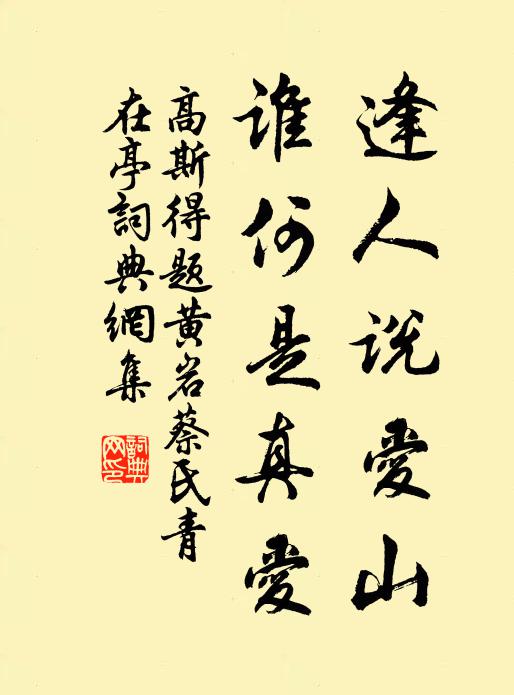 逢人说爱山
谁何是真爱
高斯得题黄岩蔡氏青
在亭詞典網集
詞典網印